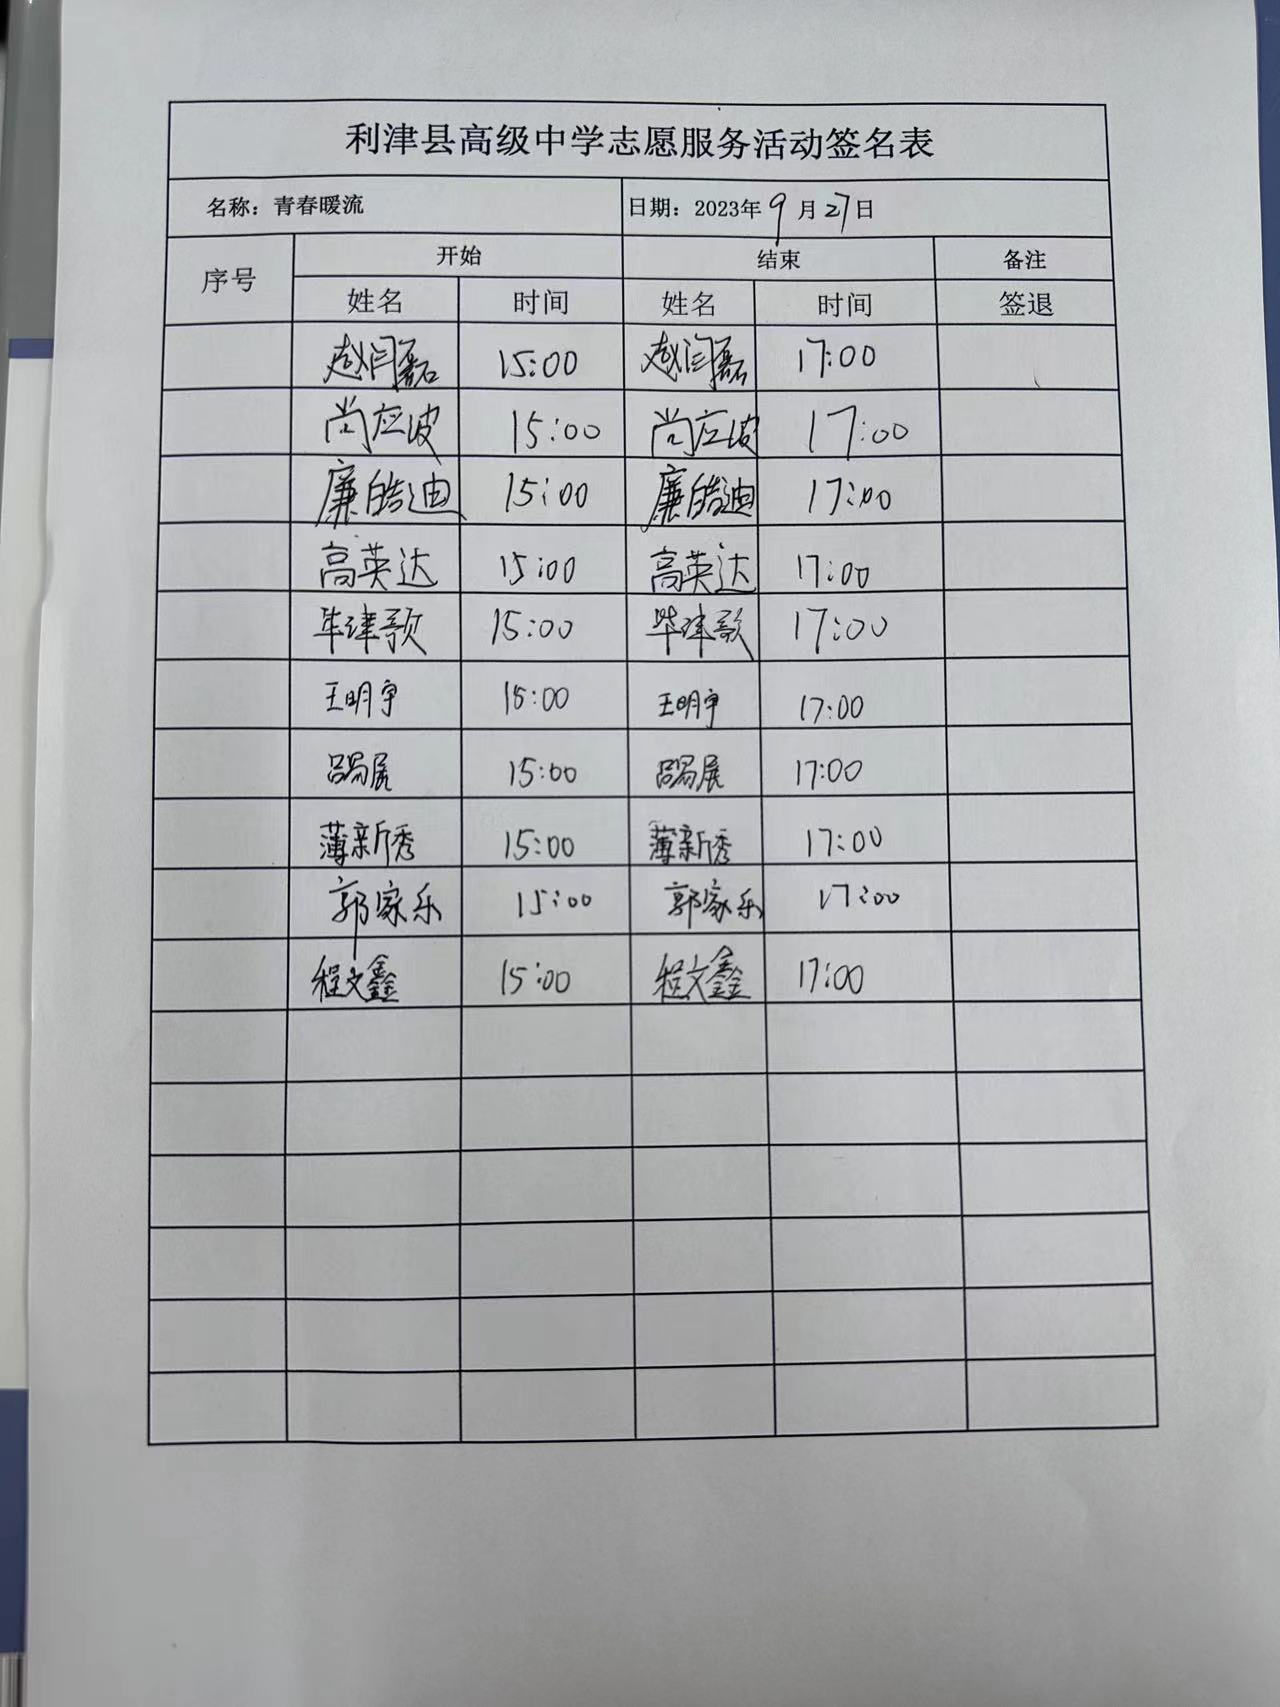 利津县高级中学志愿服务活动签名表
名称：青春暖流 日期：2023年9月27日
序号 开始 结束 备注
姓名 时间 姓名 时间 签退
赵闫磊 15:00 赵闫磊 17:00
尚应波 15:00 尚应波 17:00
廉皓迪 15:00 廉皓迪 17:00
高英达 15:00 高英达 17:00
毕津歌 15:00 毕津歌 17:00
王明宇 15:00 王明宇 17:00
15:00 17:00
薄新秀 15:00 薄新秀 17:00
郭家乐 15:00 郭家乐 17:00
程文鑫 15:00 程文鑫 17:00